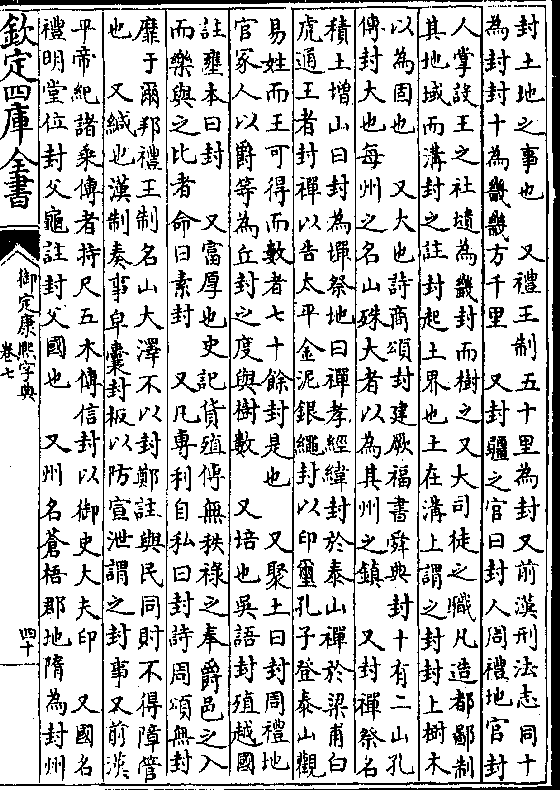 封土地之事也　又禮王制五十里為封又前漢刑法志同十
為封封十為畿畿方千里　又封疆之官曰封人周禮地官封
人掌設王之社壝為畿封而樹之又大司徒之職凡造都鄙制
其地域而溝封之註封起土界也土在溝上謂之封封上樹木
以為固也　又大也詩商頌封建厥福書舜典封十有二山孔
傳封大也每州之名山殊大者以為其州之鎮　又封禪祭名
積土增山曰封為墠祭地曰禪孝經緯封於泰山禪於梁甫白
虎通王者封禪以告太平金泥銀繩封以印璽孔子登泰山觀
易姓而王可得而數者七十餘封是也　又聚土曰封周禮地
官冢人以爵等為丘封之度與樹數　又培也吳語封殖越國
註壅本曰封　又富厚也史記貨殖傳無秩祿之奉爵邑之入
而樂與之比者命曰素封　又凡專利自私曰封詩周頌無封
靡于爾邦禮王制名山大澤不以封鄭註與民同財不得障管
也　又緘也漢制奏事皁囊封板以防宣泄謂之封事又前漢
平帝紀諸乘傳者持尺五木傳信封以御史大夫印　又國名
禮明堂位封父龜註封父國也　又州名蒼梧郡地隋為封州
欽定四庫全書
御定康熙字典
卷七
四十